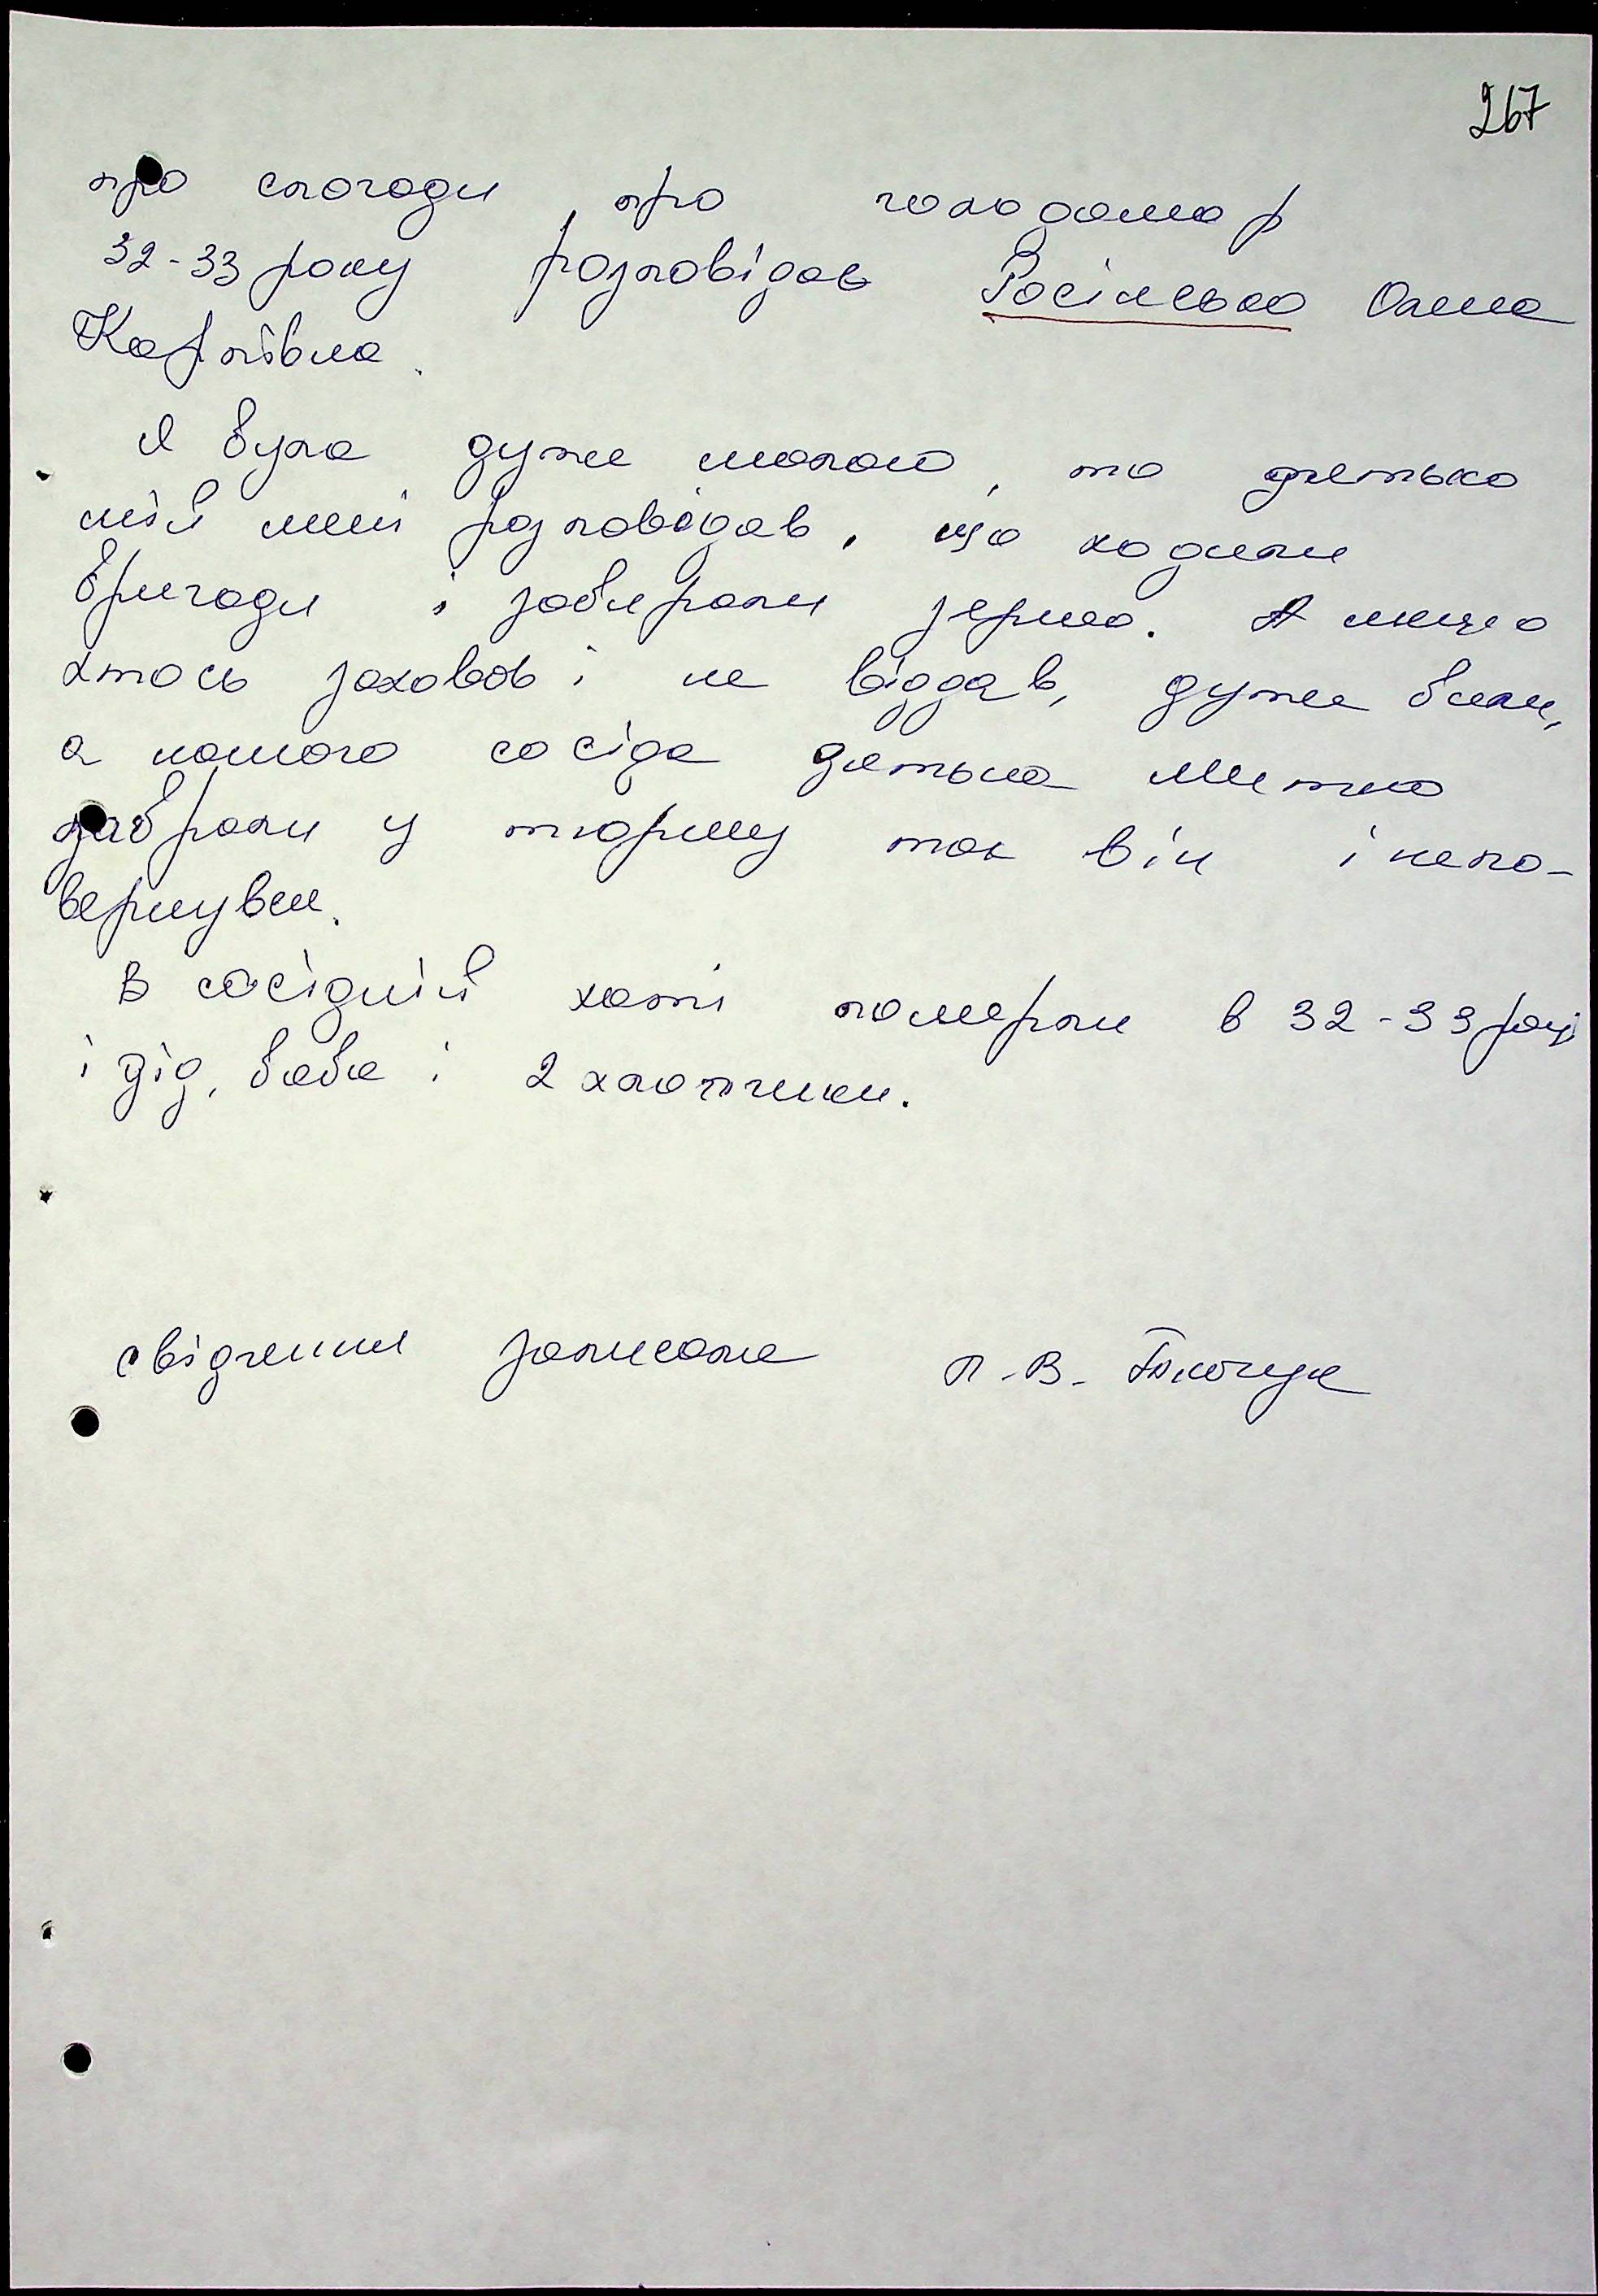 267
про спогади про голодомор
32-33 року розповідає Росінська Олена
Карпівна.
Я була дуже малою, то дядько
мій мені розповідав, що ходили
бригади і забирали зерно. А якщо
хтось заховав і не віддав, дуже били,
а нашого сосіда дядька Митю
забрали у тюрму так він і непо-
вернувся.
В сосідній хаті померли в 32-33 році
і дід, баба і 2 хлопчики.
свідчення записала П.В.